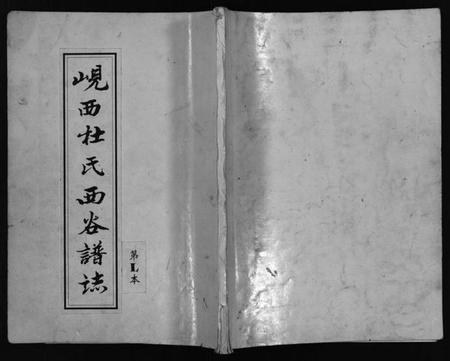 峴西杜氏西谷譜誌
第L本